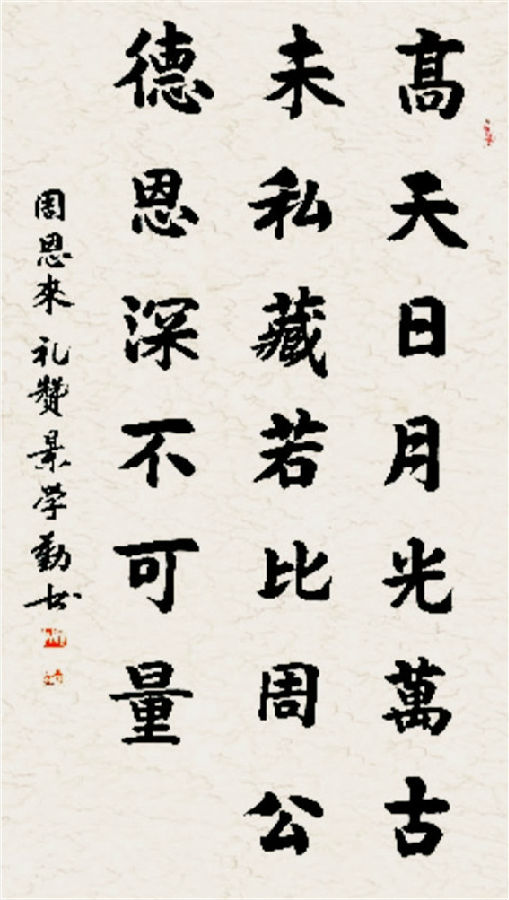 高天日月光萬古
未私藏若比周公
德恩深不可量
周恩來礼贊景学勤书